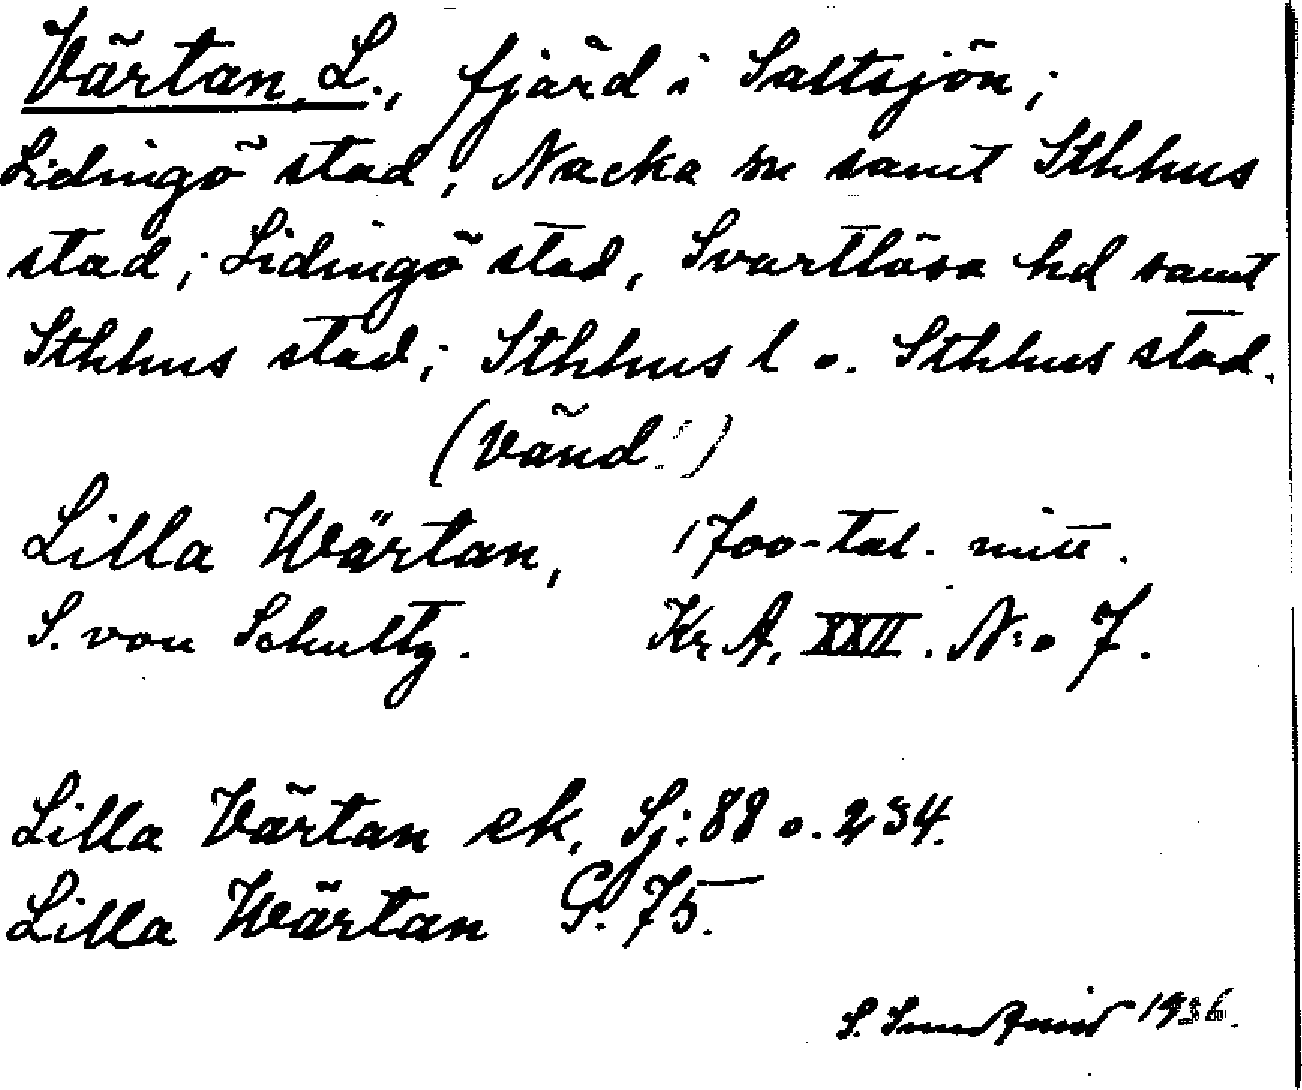 Värtan, L., fjärd i Saltsjön;
Lidingö stad, Nacka sn samt Sthlms
stad; Lidingö stad, Svartlösa hd samt
Sthlms stad; Sthlms l o. Sthlms stad.
(Vänd!)
Lilla Wärtan, 1700-tal. mitt.
S. von Schultz. Kr. A. XXII. N:o 7.
Lilla Värtan ek. Sj: 88 o. 234.
Lilla Wärtan G. 75.
S. 1936.